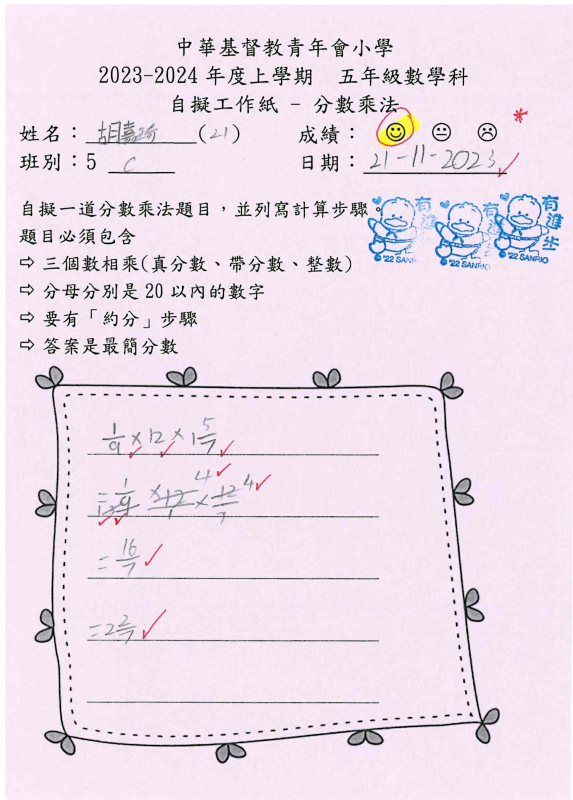 中華基督教青年會小學
2023-2024 年度上學期 五年級數學科
自擬工作紙 - 分數乘法
姓名：胡嘉(21) 成績：☺ 😐 ☹ *
班別：5 C 日期：21-11-2023
自擬一道分數乘法題目，並列寫計算步驟。
題目必須包含
⇨ 三個數相乘(真分數、帶分數、整數)
⇨ 分母分別是 20 以內的數字
⇨ 要有「約分」步驟
⇨ 答案是最簡分數
有進步 有進步 有進步
© '22 SANRIO © '22 SANRIO © '22 SANRIO
1/9 × 12 × 1 5/7
4 4
= 1/9 × 12/1 × 12/7
= 16/7
= 2 2/7